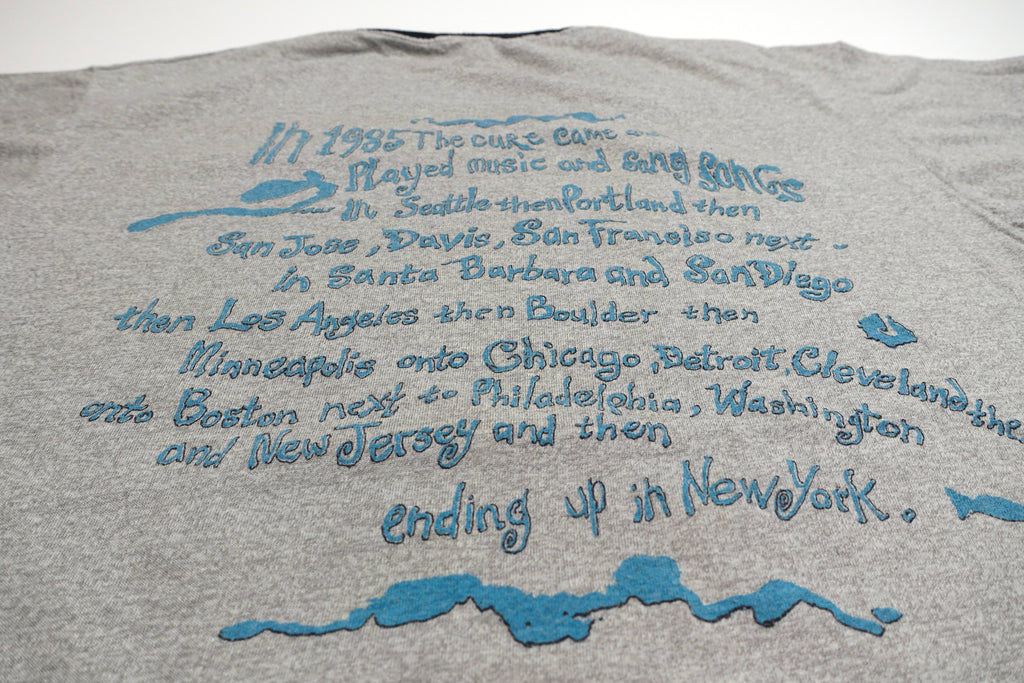 In 1985 The CURE Came
Played music and sang SONGS
in Seattle then Portland then
San Jose, Davis, San Fransiso next
in Santa Barbara and San Diego
then Los Angeles then Boulder then
Minneapolis onto Chicago, Detroit, Cleveland then
onto Boston next to Philadelphia, Washington
and New Jersey and then
ending up in New York.